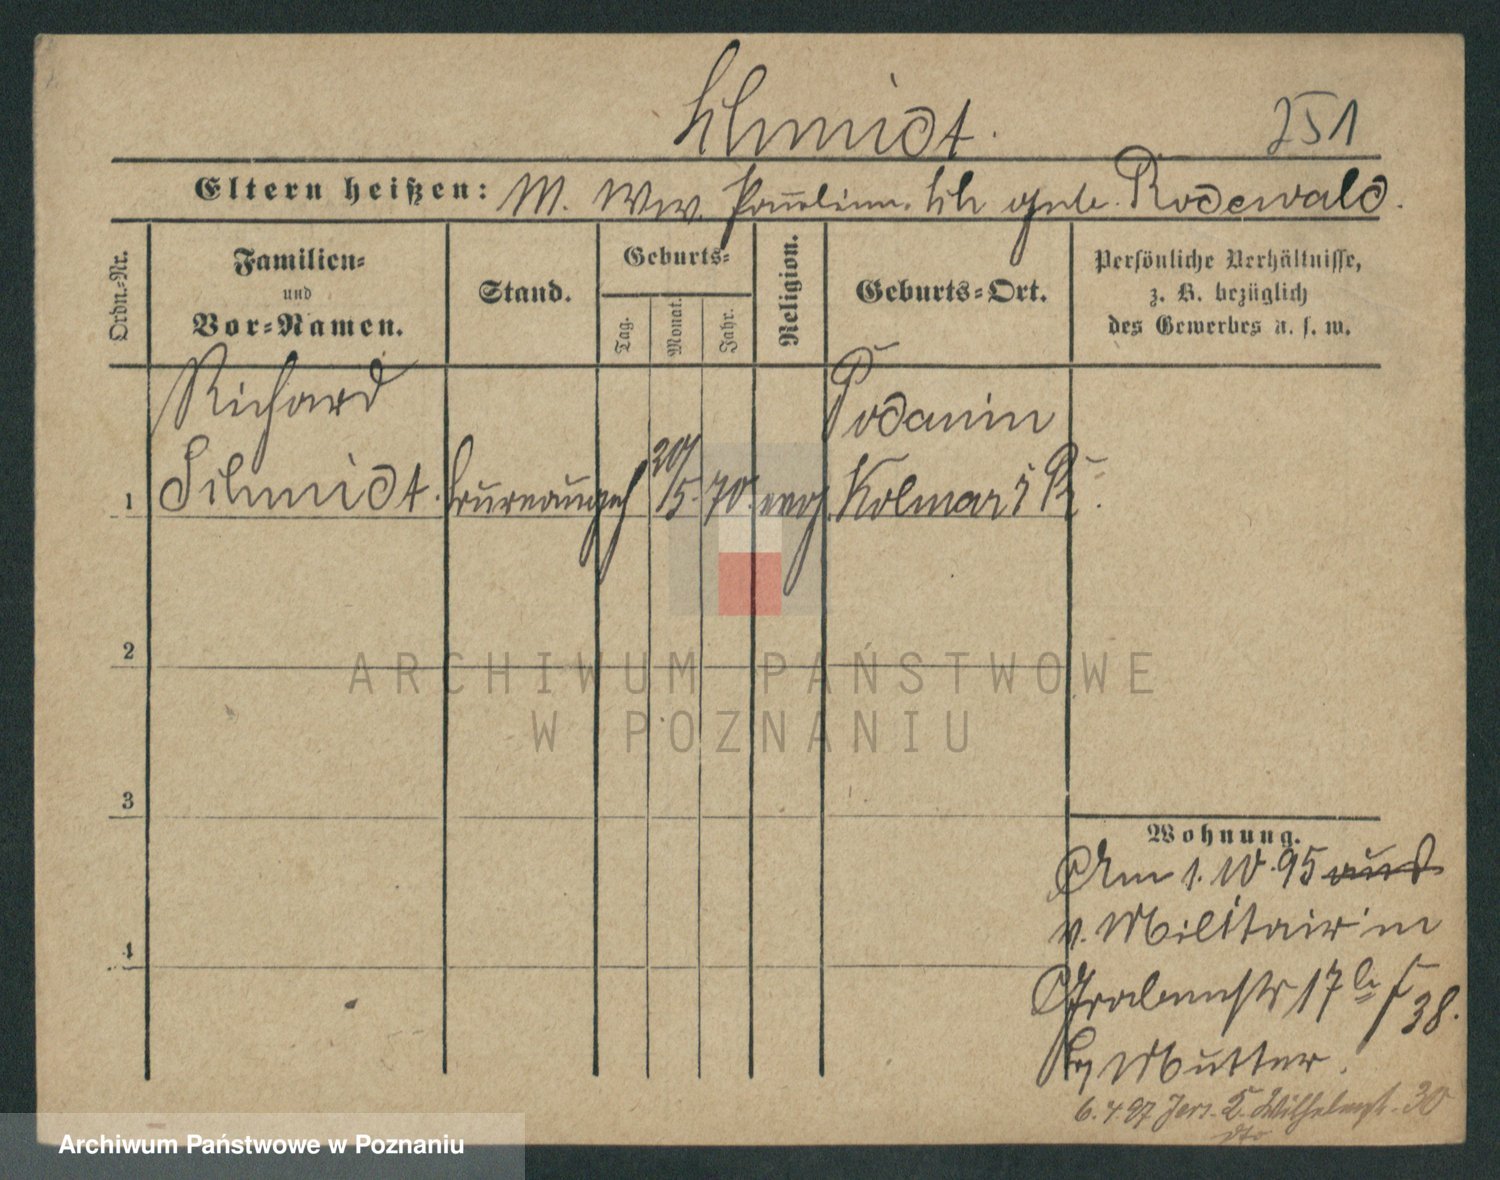 Schmidt.
251
Eltern heißen: M. Ww. Pauline Sch gebe. Rodewald.
Ordn.-Nr.
Familien-
und
Vor-Namen.
Stand.
Geburts-
Tag.
Monat.
Jahr.
Religion.
Geburts-Ort.
Persönliche Verhältnisse,
z. B. bezüglich
des Gewerbes u. s. w.
Richard
Podanin
1 Schmidt. bureaugeh 20/5. 70. evg. Kolmar i P.
2
3
4
Wohnung.
Am 1. 10. 95 aus
v. Militair in
Grabenstr 17
38.
by Mutter.
6. 4. 97 Jers. Wilhelmst. 30
dto
ARCHIWUM PAŃSTWOWE
W POZNANIU
Archiwum Państwowe w Poznaniu